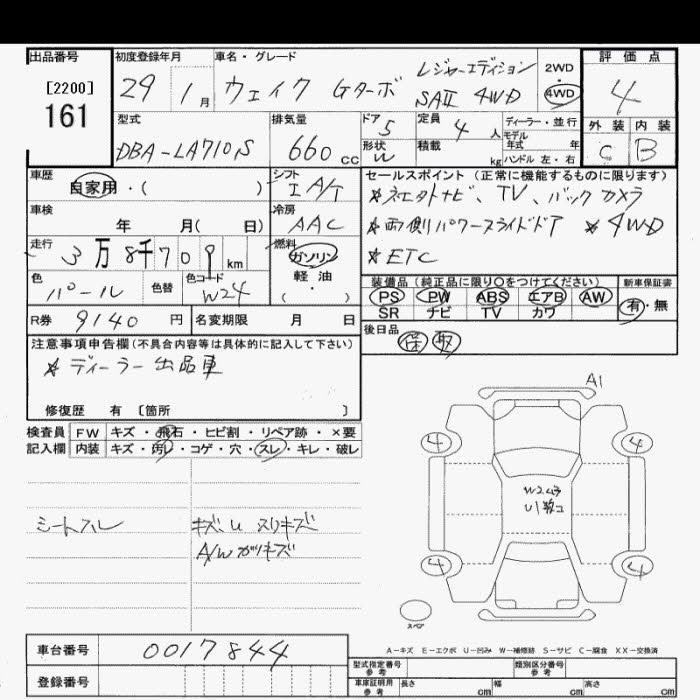 出品番号 初度登録年月 車名・グレード 評価点
[2200] 29 1月 ウェイク Gターボ レジャーエディション SAⅡ 4WD 2WD・4WD 4
161
型式 排気量 ドア 5 定員 4人 ディーラー・並行 外装 内装
DBA-LA710S 660cc 形状 W 積載 kg モデル年式 年 ハンドル 左・右 C B
車歴 自家用・( ) シフト IA/T セールスポイント (正常に機能するものに限ります)
車検 年 月( 日) 冷房 AAC
*ネエタトナビ、TV、バックカメラ
*両側パワースライドドア *4WD
*ETC
走行 3万8千709km 燃料 ガソリン 軽油・( )
色 パール 色替 色コード W24
装備品 (純正品に限り○をつけてください) 新車保証書
PS PW ABS エアB AW 有・無
SR ナビ TV カワ
R券 9140円 名変期限 月 日 後日品 保 取
注意事項申告欄(不具合内容等は具体的に記入して下さい)
*ディーラー出品車
修復歴 有 [箇所 ]
検査員 FW キズ・飛石・ヒビ割・リペア跡・×要
記入欄 内装 キズ・汚レ・コゲ・穴・スレ・キレ・破レ
シートスレ キズ、U スリキズ
A/W ガリキズ
A1
4 4
4 4
スペア
A-キズ E-エクボ U-凹み W-補修跡 S-サビ C-腐食 XX-交換済
車台番号 0017844
登録番号
型式指定番号 参考 類別区分番号 参考
車庫証明用 参考 長さ cm 幅 cm 高さ cm